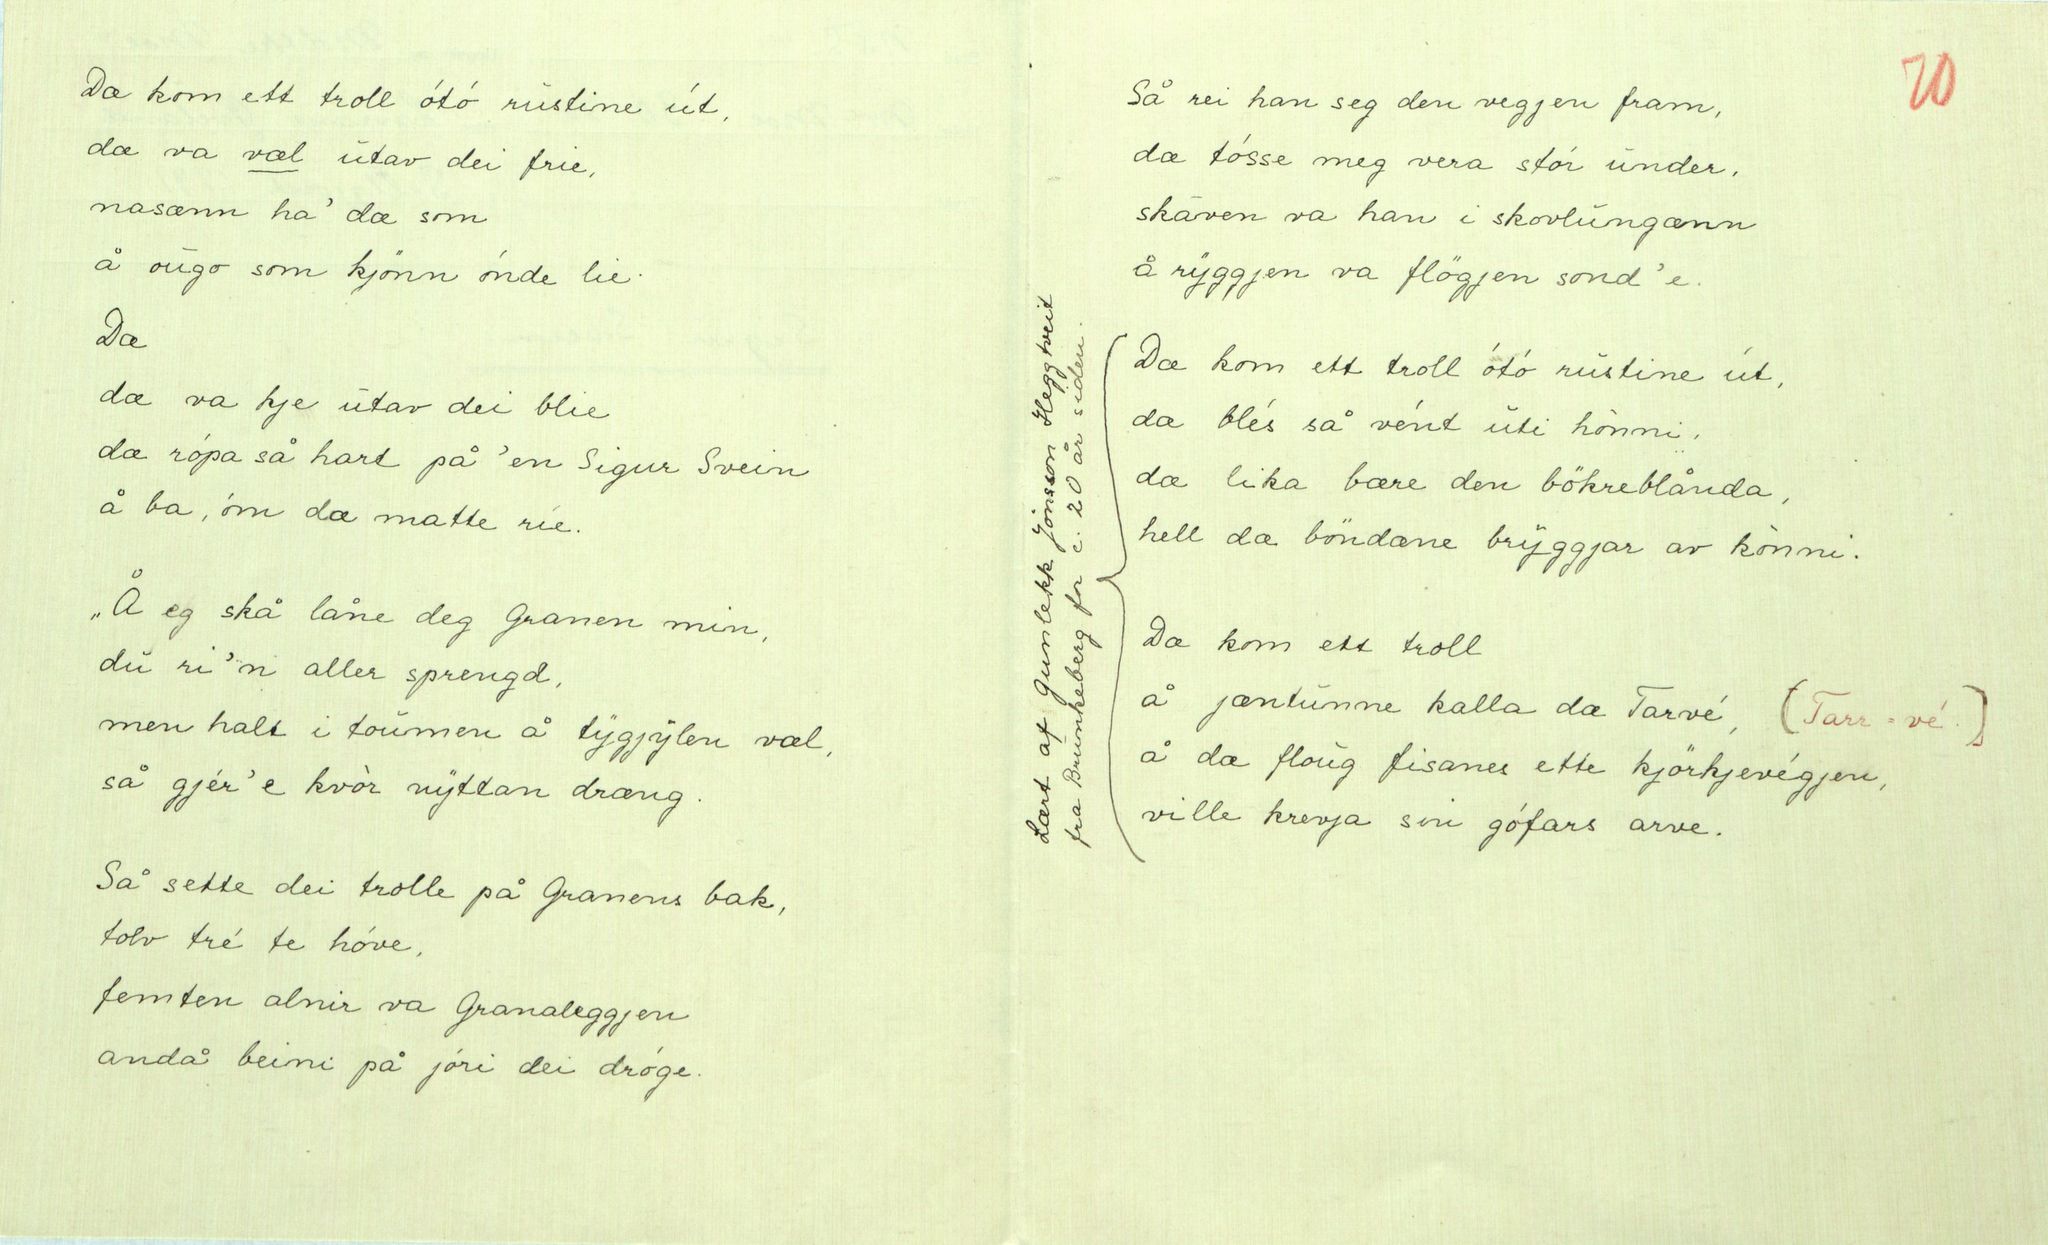 Dæ kom ett troll ótó rüstine út,
dæ va væl ütav dei frie,
nasænn ha' dæ som
å öügo som kjönn ónde lie.
Dæ
dæ va kje ütav dei blie
dæ rópa så hart på 'en Sigur Svein
å ba, óm dæ matte rie.
„Å eg skå låne deg Granen min,
dü ri'n aller sprengd,
men halt i toümen å tÿgjÿlen væl,
så gjér'e kvòr nÿttan dræng.
Så sette dei trolle på Granens bak,
tolv tré te hóve,
femten alnir va Granaleggjen
andå beini på jóri dei dróge.
70
Så rei han seg den vegjen fram,
dæ tósse meg vera stór ünder,
skåven va han i skovlüngænn
å rÿggjen va flögjen sond'e.
Dæ kom ett troll ótó rüstine út,
dæ blés så vént üti hònni,
dæ lika bære den bökreblånda,
hell dæ böndæne brÿggjar av kònni.
Dæ kom ett troll
å jæntünne kalla dæ Tarvé, (Tarr-vé.)
å dæ floüg fisanes ette kjörkjevégjen,
ville krevja sin gófars arve.
Lært af Gunlekk Jónsson Heggtveit
fra Brünkeberg for c. 20 år siden.